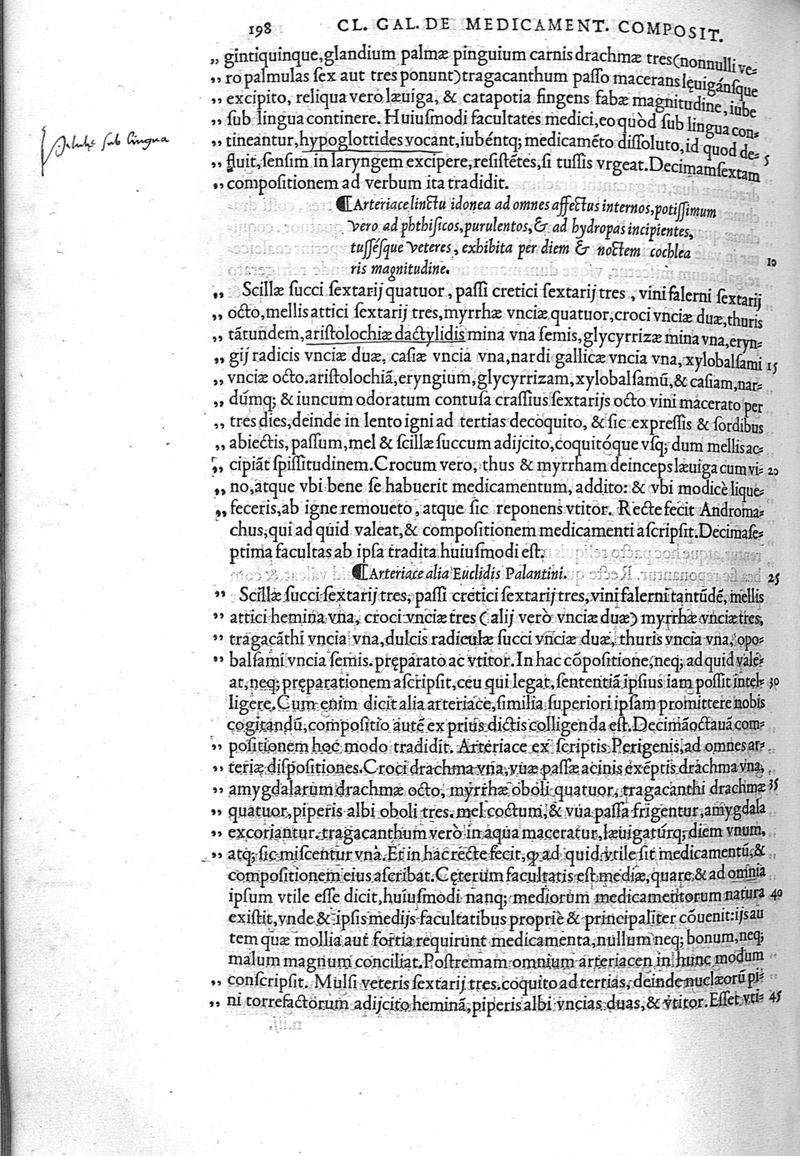 198 CL. GAL. DE MEDICAMENT. COMPOSIT.
„ gintiquinque, glandium palmæ pinguium carnis drachmæ tres (nonnulli ve=
„ ro palmulas ſex aut tres ponunt) tragacanthum paſſo macerans lęuigánſque
„ excipito, reliqua vero læuiga, & catapotia fingens fabæ magnitudine, iube
„ ſub lingua continere. Huiuſmodi facultates medici, eo quòd ſub lingua con=
„ tineantur, hypoglottides vocant, iubéntq; medicamẽto diſſoluto, id quod de=
„ fluit, ſenſim in laryngem excipere, reſiſtẽtes, ſi tuſſis vrgeat. Decimamſextam 5
„ compoſitionem ad verbum ita tradidit.
ſub lingua
¶ Arteriace linctu idonea ad omnes affectus internos, potiſſimum
vero ad phthiſicos, purulentos, & ad hydropas incipientes,
tuſſéſque veteres, exhibita per diem & noctem cochlea 10
ris magnitudine.
„ Scillæ ſucci ſextarij quatuor, paſſi cretici ſextarij tres, vini falerni ſextarij
„ octo, mellis attici ſextarij tres, myrrhæ vnciæ quatuor, croci vnciæ duæ, thuris
„ tãtundem, ariſtolochiæ dactylidis mina vna ſemis, glycyrrizæ mina vna, eryn=
„ gij radicis vnciæ duæ, caſiæ vncia vna, nardi gallicæ vncia vna, xylobalſami 15
„ vnciæ octo. ariſtolochiã, eryngium, glycyrrizam, xylobalſamũ, & caſiam, nar=
„ dúmq; & iuncum odoratum contuſa craſſius ſextarijs octo vini macerato per
„ tres dies, deinde in lento igni ad tertias decoquito, & ſic expreſſis & ſordibus
„ abiectis, paſſum, mel & ſcillæ ſuccum adijcito, coquitóque vſq; dum mellis ac=
„ cipiãt ſpiſſitudinem. Crocum vero, thus & myrrham deinceps læuiga cum vi= 20
„ no, atque vbi bene ſe habuerit medicamentum, addito: & vbi modicè lique=
„ feceris, ab igne remoueto, atque ſic reponens vtitor. Recte fecit Androma=
chus, qui ad quid valeat, & compoſitionem medicamenti aſcripſit. Decimaſe=
ptima facultas ab ipſa tradita huiuſmodi eſt.
¶ Arteriace alia Euclidis Palantini. 25
„ Scillæ ſucci ſextarij tres, paſſi cretici ſextarij tres, vini falerni tantũdẽ, mellis
„ attici hemina vna, croci vnciæ tres (alij verò vnciæ duæ) myrrhæ vnciæ tres,
„ tragacãthi vncia vna, dulcis radiculæ ſucci vnciæ duæ, thuris vncia vna, opo=
„ balſami vncia ſemis. pręparato ac vtitor. In hac cõpoſitione, neq; ad quid vale=
at, neq; pręparationem aſcripſit, ceu qui legat, ſententiã ipſius iam poſſit intel= 30
ligere. Cum enim dicit alia arteriace, ſimilia ſuperiori ipſam promittere nobis
cogitandũ, compoſitio autẽ ex prius dictis colligenda eſt. Decimãoctauã com=
„ poſitionem hoc modo tradidit. Arteriace ex ſcriptis Perigenis, ad omnes ar=
„ teriæ diſpoſitiones. Croci drachma vna, vuæ paſſæ acinis exẽptis drachma vna,
„ amygdalarum drachmæ octo, myrrhæ oboli quatuor, tragacanthi drachmæ 35
„ quatuor, piperis albi oboli tres. mel coctum, & vua paſſa frigentur, amygdala
„ excoriantur. tragacanthum verò in aqua maceratur, læuigatúrq; diem vnum,
„ atq; ſic miſcentur vnà. Et in hac recte fecit, ꝙ ad quid vtile ſit medicamentũ, &
compoſitionem eius aſcribat. Cęterum facultatis eſt mediæ, quare & ad omnia
ipſum vtile eſſe dicit, huiuſmodi nanq; mediorum medicamentorum natura 40
exiſtit, vnde & ipſis medijs facultatibus propriè & principaliter cõuenit: ijs au
tem quæ mollia aut fortia requirunt medicamenta, nullum neq; bonum, neq;
malum magnum conciliat. Poſtremam omnium arteriacen in hunc modum
„ conſcripſit. Mulſi veteris ſextarij tres. coquito ad tertias, deinde nucleorũ pi=
„ ni torrefactorum adijcito heminã, piperis albi vncias duas, & vtitor. Eſſet vti= 45